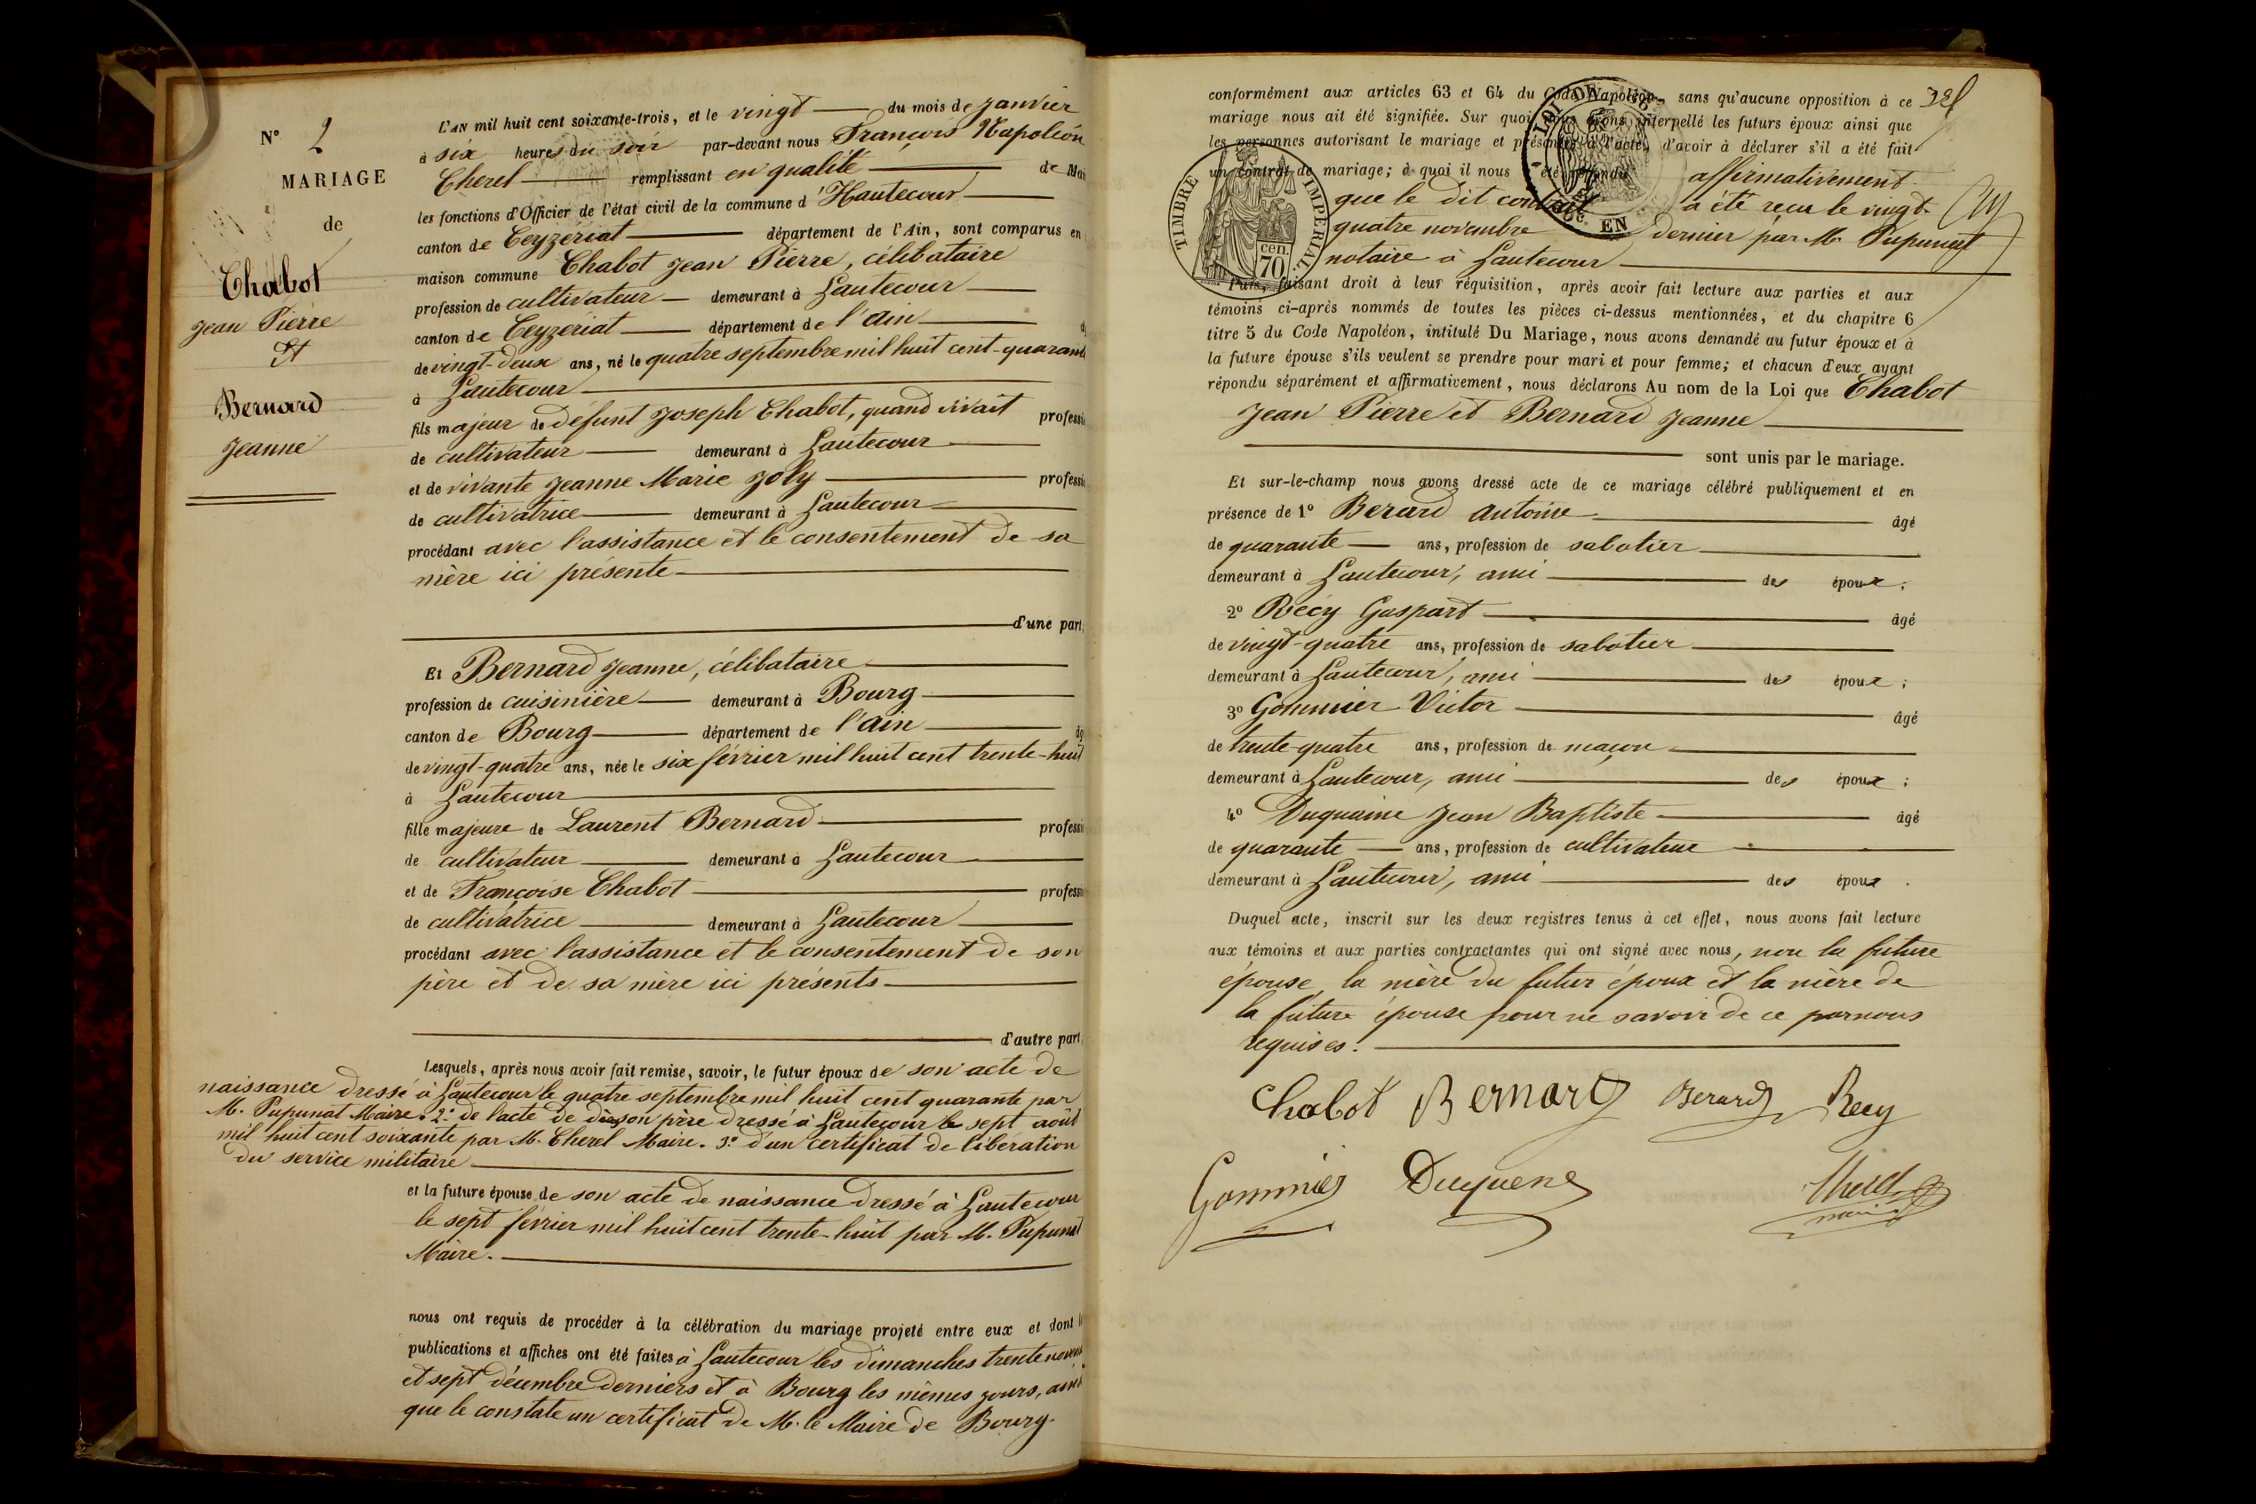 N° 2
MARIAGE
de
Chabot
Jean Pierre
Et
Bernard
Jeanne
L'AN mil huit cent soixante-trois, et le vingt du mois de Janvier
à six heures du soir par-devant nous François Napoléon
Cherel remplissant en qualité de Mai
les fonctions d'Officier de l'état civil de la commune d'Hautecour
canton de Ceyzériat département de l'Ain, sont comparus en
maison commune Chabot Jean Pierre, célibataire
profession de cultivateur demeurant à hautecour
canton de Ceyzeriat département de l'Ain
de vingt-deux ans, né le quatre septembre mil huit cent-quarante
à hautecour
fils majeur de défunt Joseph Chabot, quand vivait professi
de cultivateur demeurant à hautecour
et de vivante Jeanne Marie Joly professi
de cultivatrice demeurant à hautecour
procédant avec l'assistance et le consentement de sa
mère ici présente
d'une part,
Et Bernard Jeanne, célibataire
profession de cuisinière demeurant à Bourg
canton de Bourg département de l'Ain âg
de vingt-quatre ans, née le six février mil huit cent trente-huit
à hautecour
fille majeure de Laurent Bernard professi
de cultivateur demeurant à hautecour
et de Françoise Chabot profess
de cultivatrice demeurant à hautecour
procédant avec l'assistance et le consentement de son
père et de sa mère ici présents
d'autre part,
Lesquels, après nous avoir fait remise, savoir, le futur époux de son acte de
naissance dressé à hautecour le quatre septembre mil huit cent quarante par
M. Pupunat Maire. 2° de l'acte de de son père dressé à hautecour le sept août
mil huit cent soixante par M. Cherel Maire. 3° d'un certificat de libération
du service militaire
et la future épouse de son acte de naissance dressé à hautecour
le sept février mil huit cent trente-huit par M. Pupunat
Maire.
nous ont requis de procéder à la célébration du mariage projeté entre eux et dont l
publications et affiches ont été faites à hautecour les dimanches trente novem
et sept décembre derniers et à Bourg les mêmes jours, ainsi
que le constate un certificat de M. le Maire de Bourg.
conformément aux articles 63 et 64 du Code Napoléon, sans qu'aucune opposition à ce
mariage nous ait été signifiée. Sur quoi nous avons interpellé les futurs époux ainsi que
les personnes autorisant le mariage et présentes à l'acte, d'avoir à déclarer s'il a été fait
un contrat de mariage; à quoi il nous a été répondu affirmativement
que le dit contrat a été reçu le vingt-
quatre novembre dernier par M. Pupunat
notaire à hautecour
TIMBRE IMPERIAL
70 cen.
EN
Puis, faisant droit à leur réquisition, après avoir fait lecture aux parties et aux
témoins ci-après nommés de toutes les pièces ci-dessus mentionnées, et du chapitre 6
titre 5 du Code Napoléon, intitulé Du Mariage, nous avons demandé au futur époux et à
la future épouse s'ils veulent se prendre pour mari et pour femme; et chacun d'eux ayant
répondu séparément et affirmativement, nous déclarons Au nom de la Loi que Chabot
Jean Pierre et Bernard Jeanne
sont unis par le mariage.
Et sur-le-champ nous avons dressé acte de ce mariage célébré publiquement et en
présence de 1° Berard Antoine âgé
de quarante ans, profession de sabotier
demeurant à hautecour, ami des époux;
2° Récy Gaspart âgé
de vingt-quatre ans, profession de sabotier
demeurant à hautecour, ami des époux;
3° Gommier Victor âgé
de trente-quatre ans, profession de maçon
demeurant à hautecour, ami des époux;
4° Duquaine Jean Baptiste âgé
de quarante ans, profession de cultivateur
demeurant à hautecour, ami des époux.
Duquel acte, inscrit sur les deux registres tenus à cet effet, nous avons fait lecture
aux témoins et aux parties contractantes qui ont signé avec nous, non la future
épouse, la mère du futur époux et la mère de
la future épouse pour ne savoir de ce par nous
requises.
Chabot Bernard Berard Recy
Gommier Duquene Cherel
maire